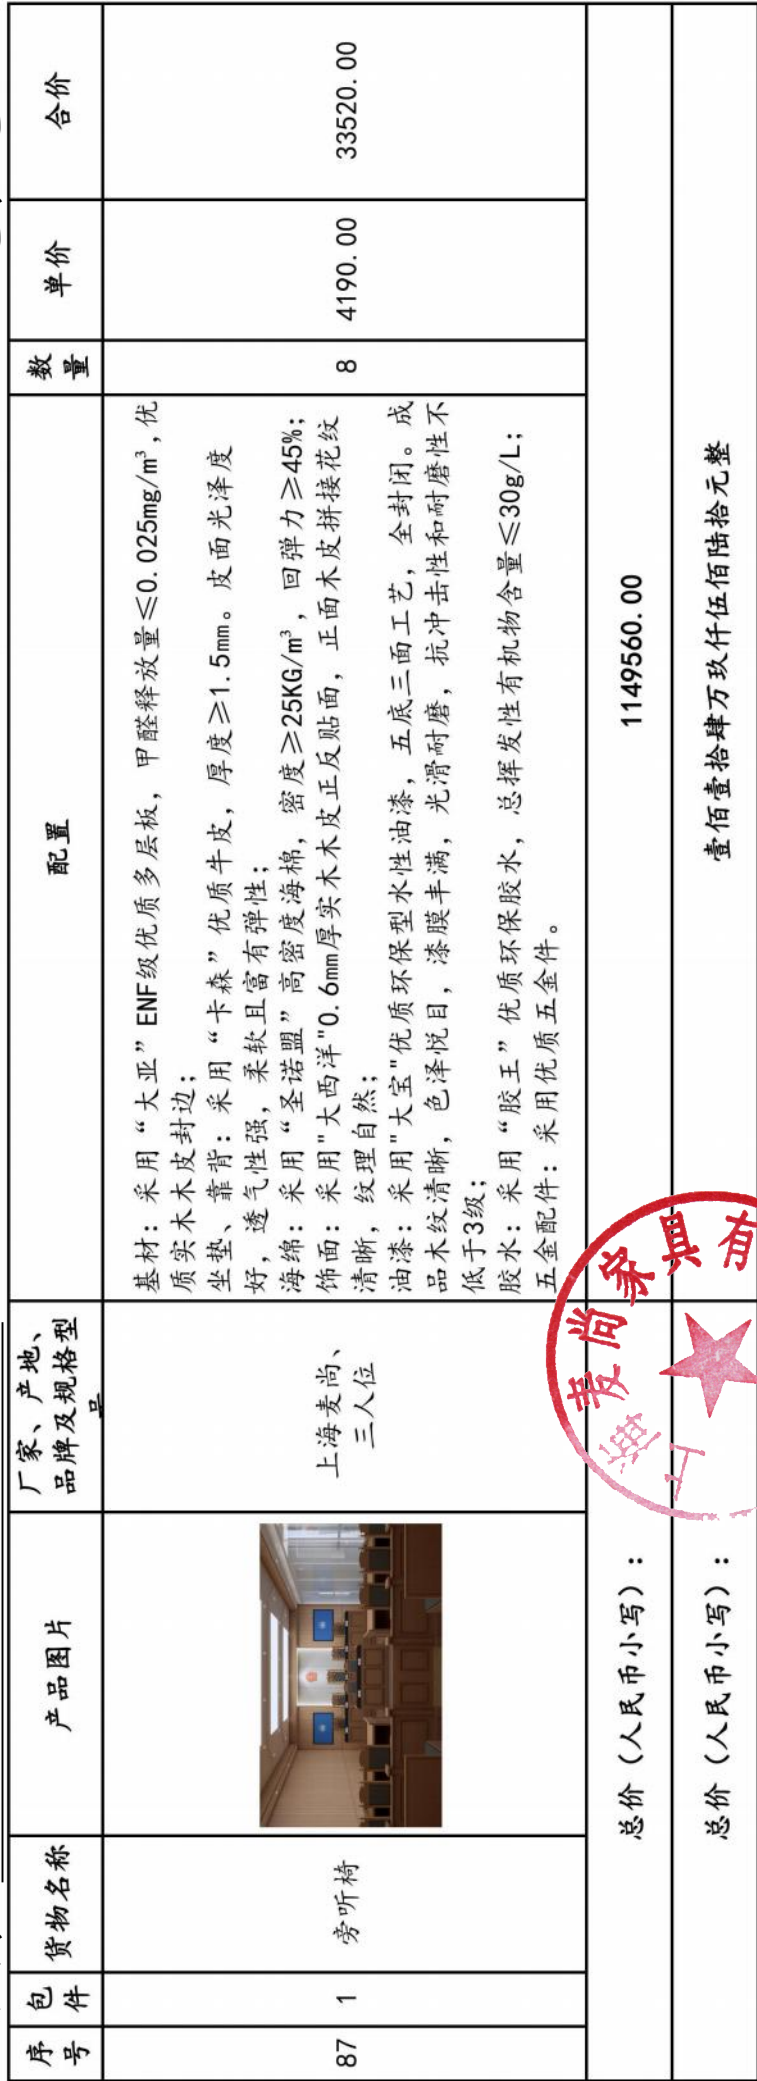 序号
包件
货物名称
产品图片
厂家、产地、
品牌及规格型
号
配置
数量
单价
合价
87
1
旁听椅
上海麦尚、
三人位
基材：采用“大亚”ENF级优质多层板，甲醛释放量≤0.025mg/m³,优
质实木木皮封边；
坐垫、靠背：采用“卡森”优质牛皮，厚度≥1.5mm。皮面光泽度
好，透气性强，柔软且富有弹性；
海绵：采用“圣诺盟”高密度海棉，密度≥25KG/m³，回弹力≥45%；
饰面：采用"大西洋"0.6mm厚实木木皮正反贴面，正面木皮拼接花纹
清晰，纹理自然；
油漆：采用"大宝"优质环保型水性油漆，五底三面工艺，全封闭。成
品木纹清晰，色泽悦目，漆膜丰满，光滑耐磨，抗冲击性和耐磨性不
低于3级；
胶水：采用“胶王”优质环保胶水，总挥发性有机物含量≤30g/L；
五金配件：采用优质五金件。
8
4190.00
33520.00
总价（人民币小写）：
1149560.00
总价（人民币小写）：
壹佰壹拾肆万玖仟伍佰陆拾元整
上海麦尚家具有